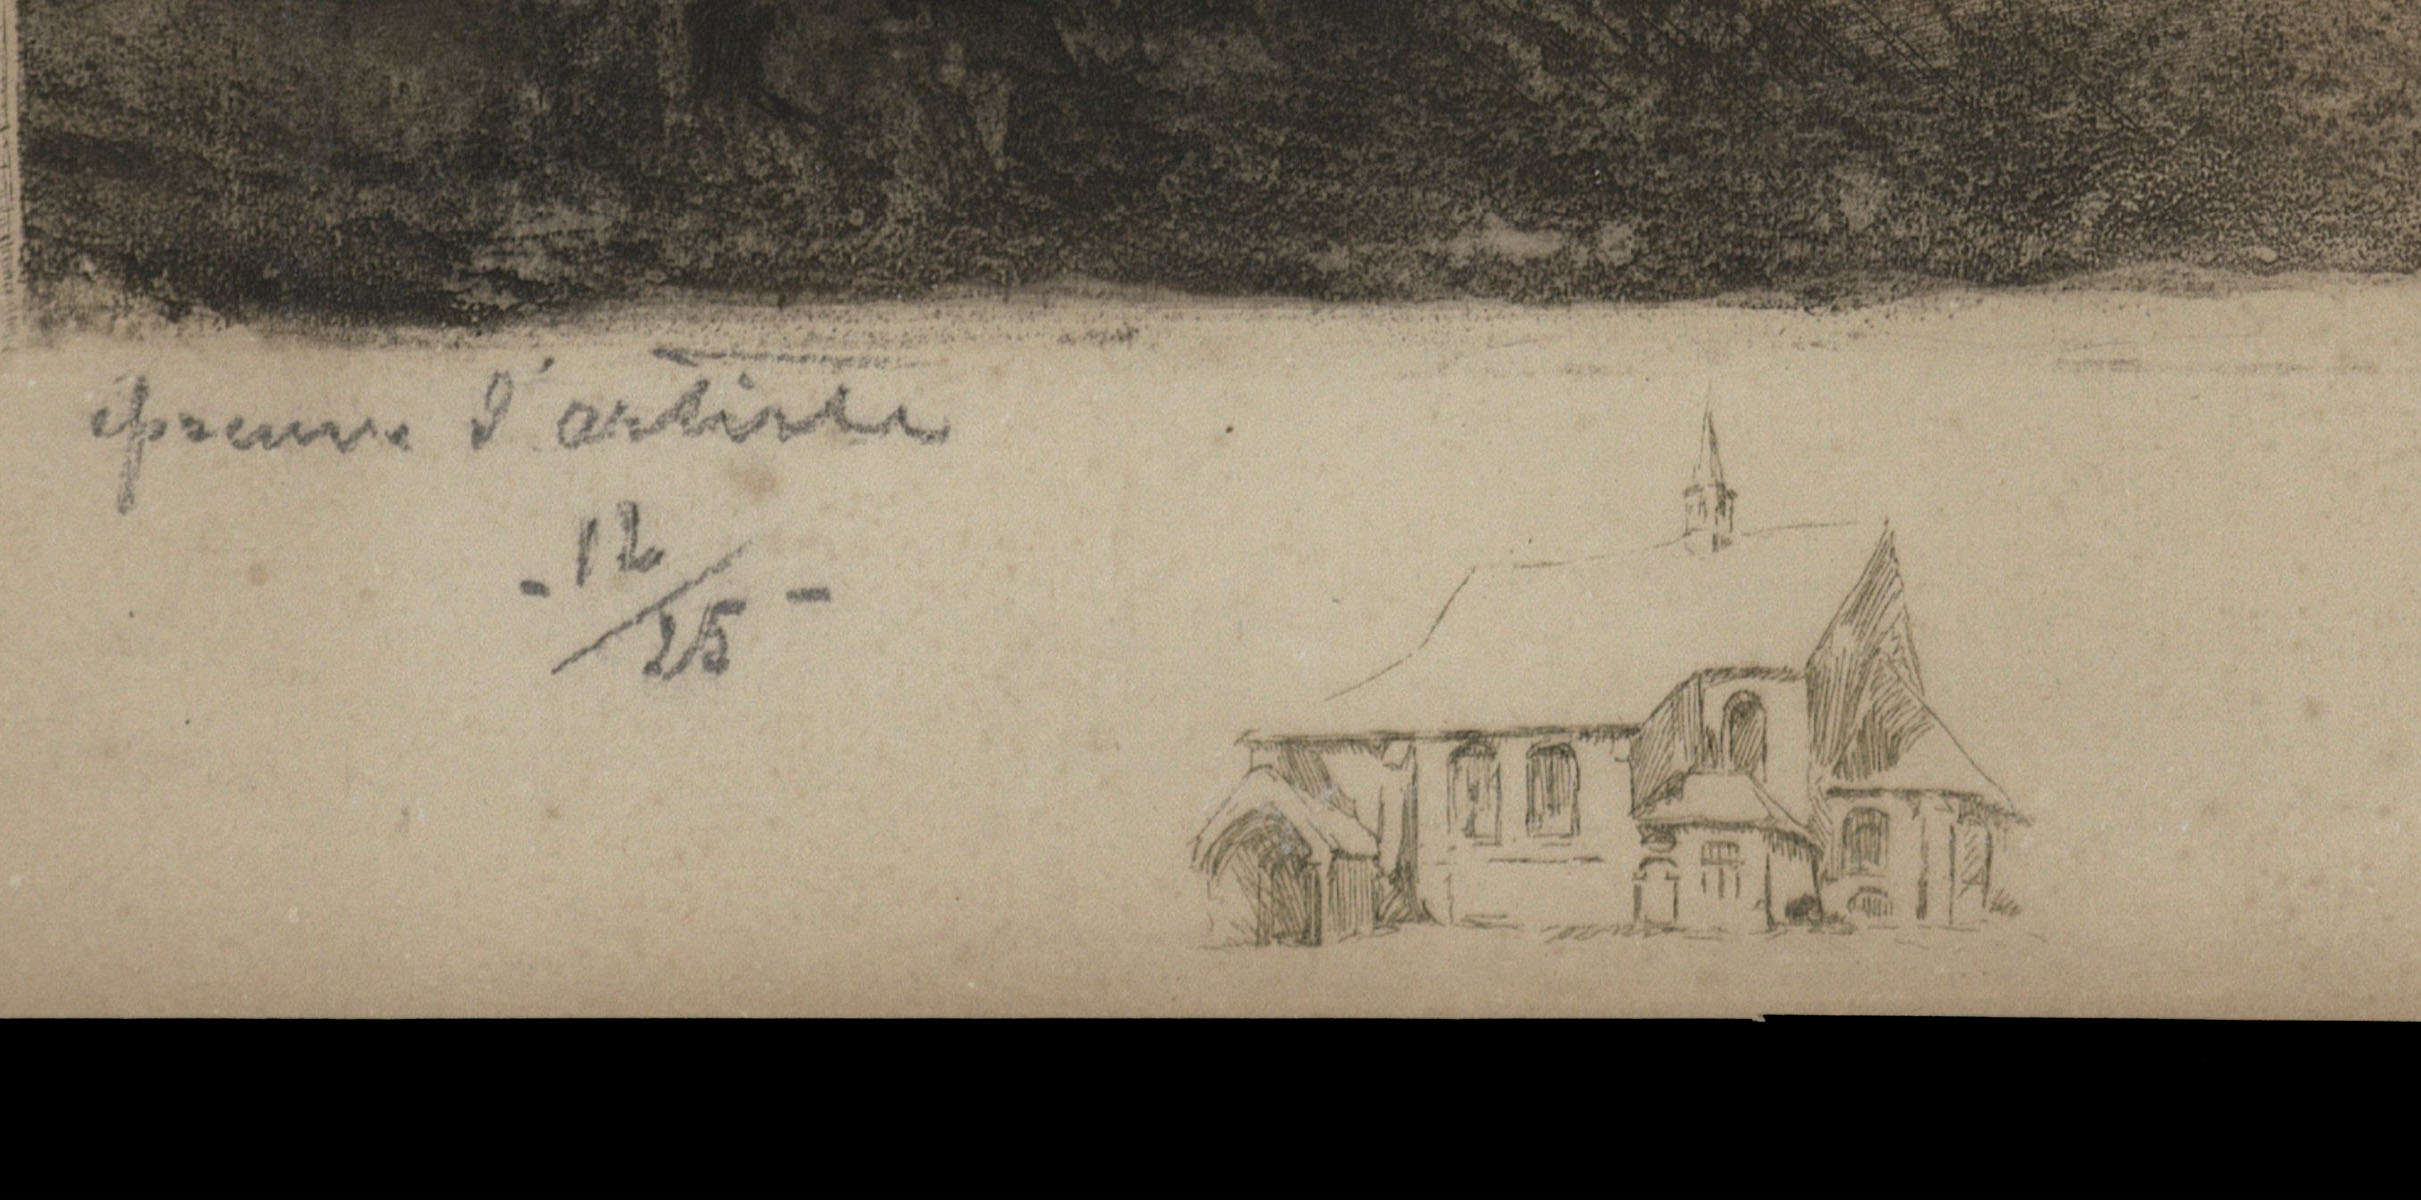 épreuve d'artiste
- 12/25 -